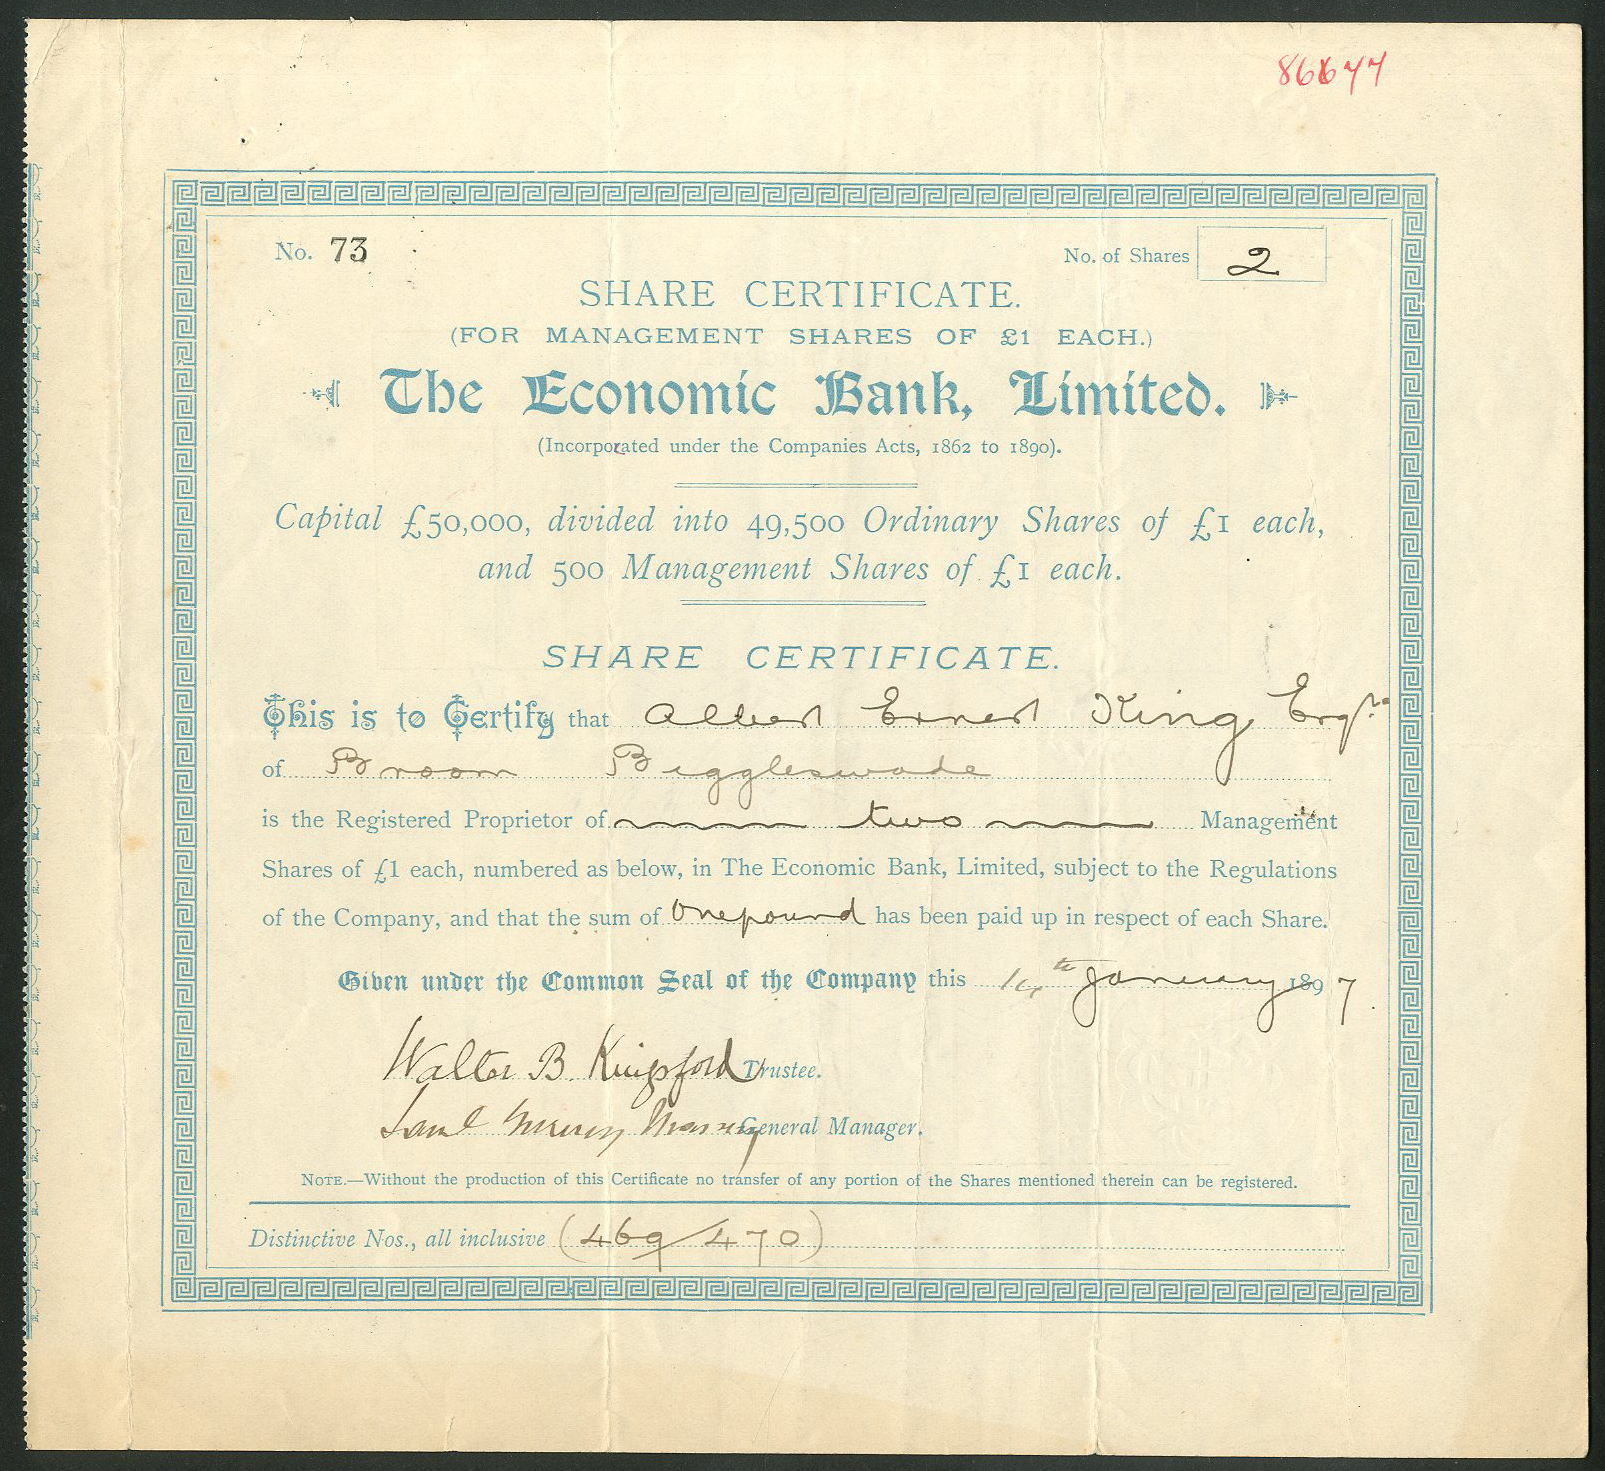 No. 73
No. of Shares 2
SHARE CERTIFICATE.
(FOR MANAGEMENT SHARES OF £1 EACH.)
The Economic Bank, Limited.
(Incorporated under the Companies Acts, 1862 to 1890).
Capital £50,000, divided into 49,500 Ordinary Shares of £1 each,
and 500 Management Shares of £1 each.
SHARE CERTIFICATE.
This is to Certify that Albert Ernest King Esqre
of Broom Biggleswade
is the Registered Proprietor of two Management
Shares of £1 each, numbered as below, in The Economic Bank, Limited, subject to the Regulations
of the Company, and that the sum of One pound has been paid up in respect of each Share.
Given under the Common Seal of the Company this 14th January 1897
Walter B. Kingsford Trustee.
General Manager.
NOTE.—Without the production of this Certificate no transfer of any portion of the Shares mentioned therein can be registered.
Distinctive Nos., all inclusive (469/470)